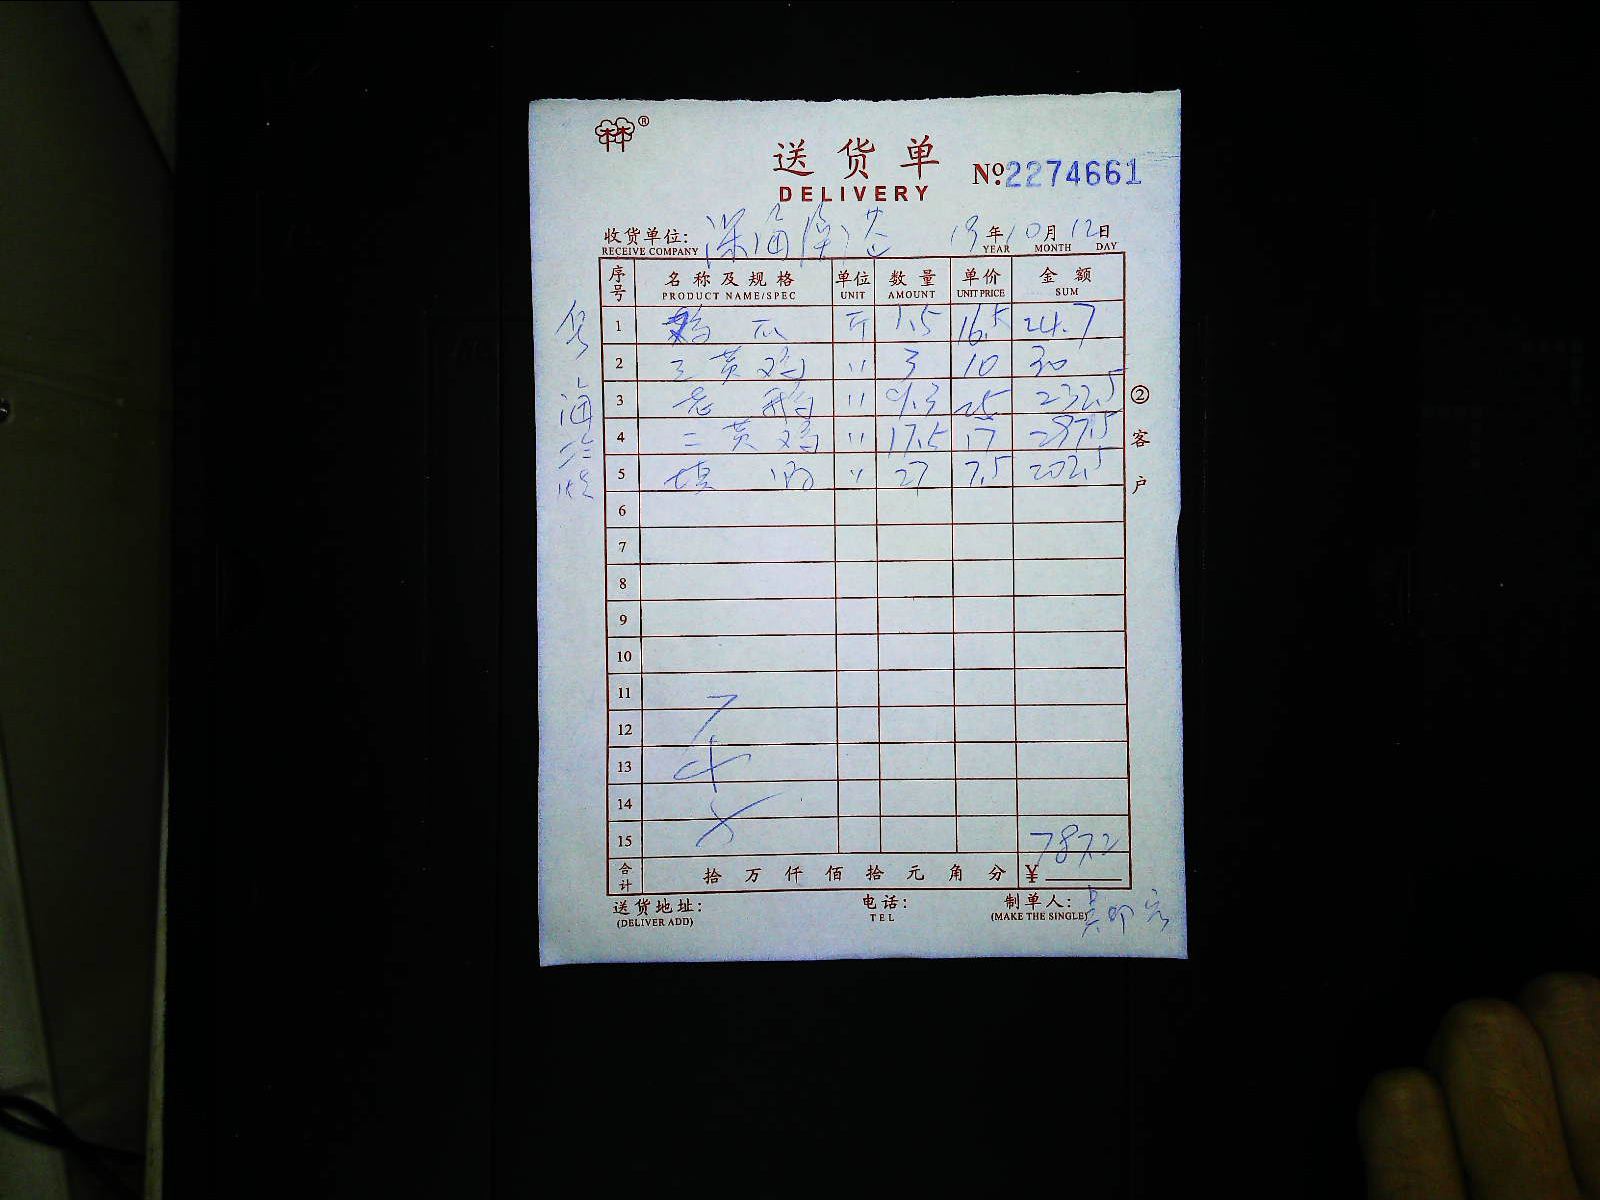 林®
送货单
DELIVERY
Nº2274661
收货单位: 深海渔港
RECEIVE COMPANY
19年10月12日
YEAR MONTH DAY
序号 名称及规格 单位 数量 单价 金额
PRODUCT NAME/SPEC UNIT AMOUNT UNIT PRICE SUM
1 鸡爪 斤 1.5 16.5 24.7
2 三黄鸡 〃 3 10 30
3 老鸭 〃 9.3 25 232.5
4 三黄鸡 〃 17.5 17 297.5
5 〃 27 7.5 202.5
6
7
8
9
10
11
12
13
14
15 787.2
合计 拾万仟佰拾元角分 ¥
②客户
送货地址: 电话: 制单人:
(DELIVER ADD) TEL (MAKE THE SINGLE)